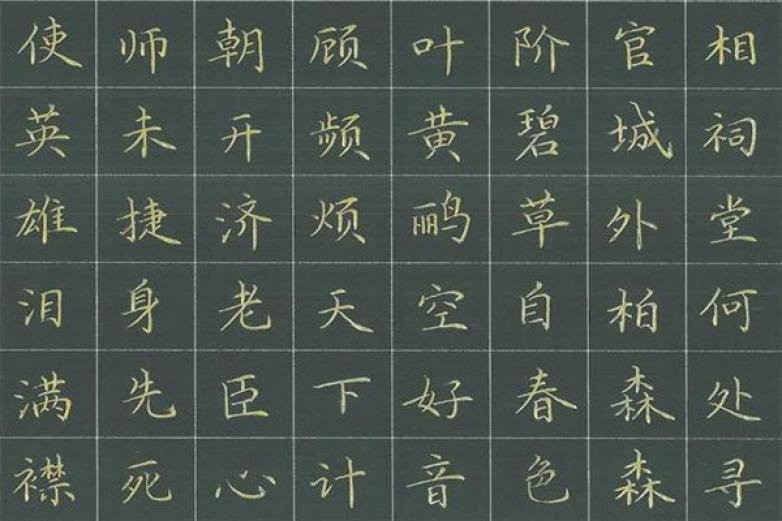 相祠堂何处寻
官城外柏森森
阶碧草自春色
叶黄鹂空好音
顾频烦天下计
朝开济老臣心
师未捷身先死
使英雄泪满襟